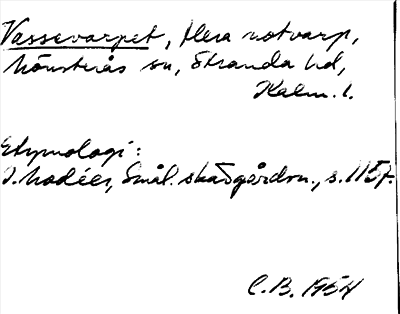 Vassevarpet, flera notvarp,
Mönsterås sn, Stranda hd,
Kalm. l.
Etymologi:
I. Modéer, Smål. skärgårdsn., s. 115 f.
C.B. 1954